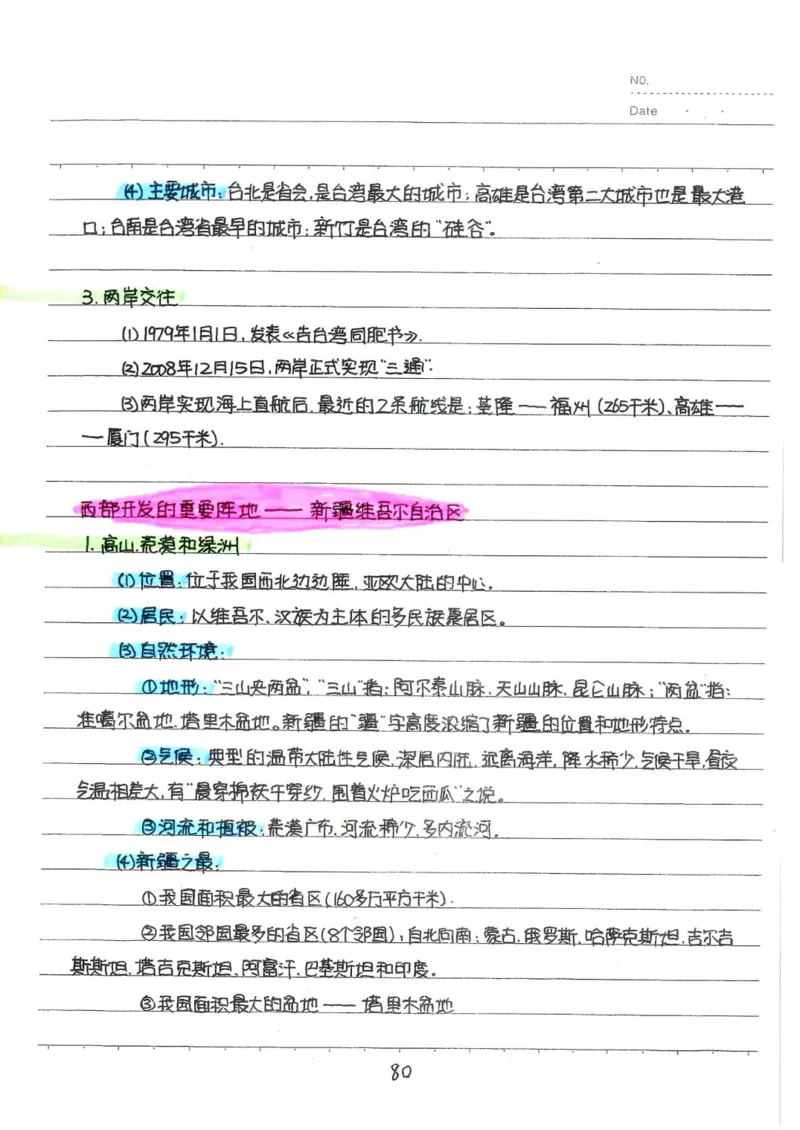 NO.
Date
(4)主要城市:台北是省会,是台湾最大的城市;高雄是台湾第二大城市也是最大港
口;台南是台湾省最早的城市;新竹是台湾的“硅谷”。
3.两岸交往
(1)1979年1月1日,发表《告台湾同胞书》.
(2)2008年12月15日,两岸正式实现“三通”.
(3)两岸实现海上直航后.最近的2条航线是:基隆——福州(265千米)、高雄—
—厦门(295千米).
西部开发的重要阵地——新疆维吾尔自治区
1.高山.荒漠和绿洲
(1)位置:位于我国西北边边陲,亚欧大陆的中心.
(2)居民:以维吾尔、汉族为主体的多民族聚居区。
(3)自然环境:
①地形:“三山夹两盆”,“三山”指:阿尔泰山脉.天山山脉.昆仑山脉;“两盆”指:
准噶尔盆地.塔里木盆地。新疆的“疆”字高度浓缩了新疆的位置和地形特点.
②气候:典型的温带大陆性气候,深居内陆,远离海洋,降水稀少,气候干旱,昼夜
气温相差大,有“晨穿棉袄午穿纱,围着火炉吃西瓜”之说。
③河流和植被:荒漠广布,河流稀少,多内流河.
(4)新疆之最:
①我国面积最大的省区(160多万平方千米).
②我国邻国最多的省区(8个邻国),自北向南:蒙古.俄罗斯.哈萨克斯坦.吉尔吉
斯斯坦.塔吉克斯坦、阿富汗.巴基斯坦和印度。
③我国面积最大的盆地——塔里木盆地
80